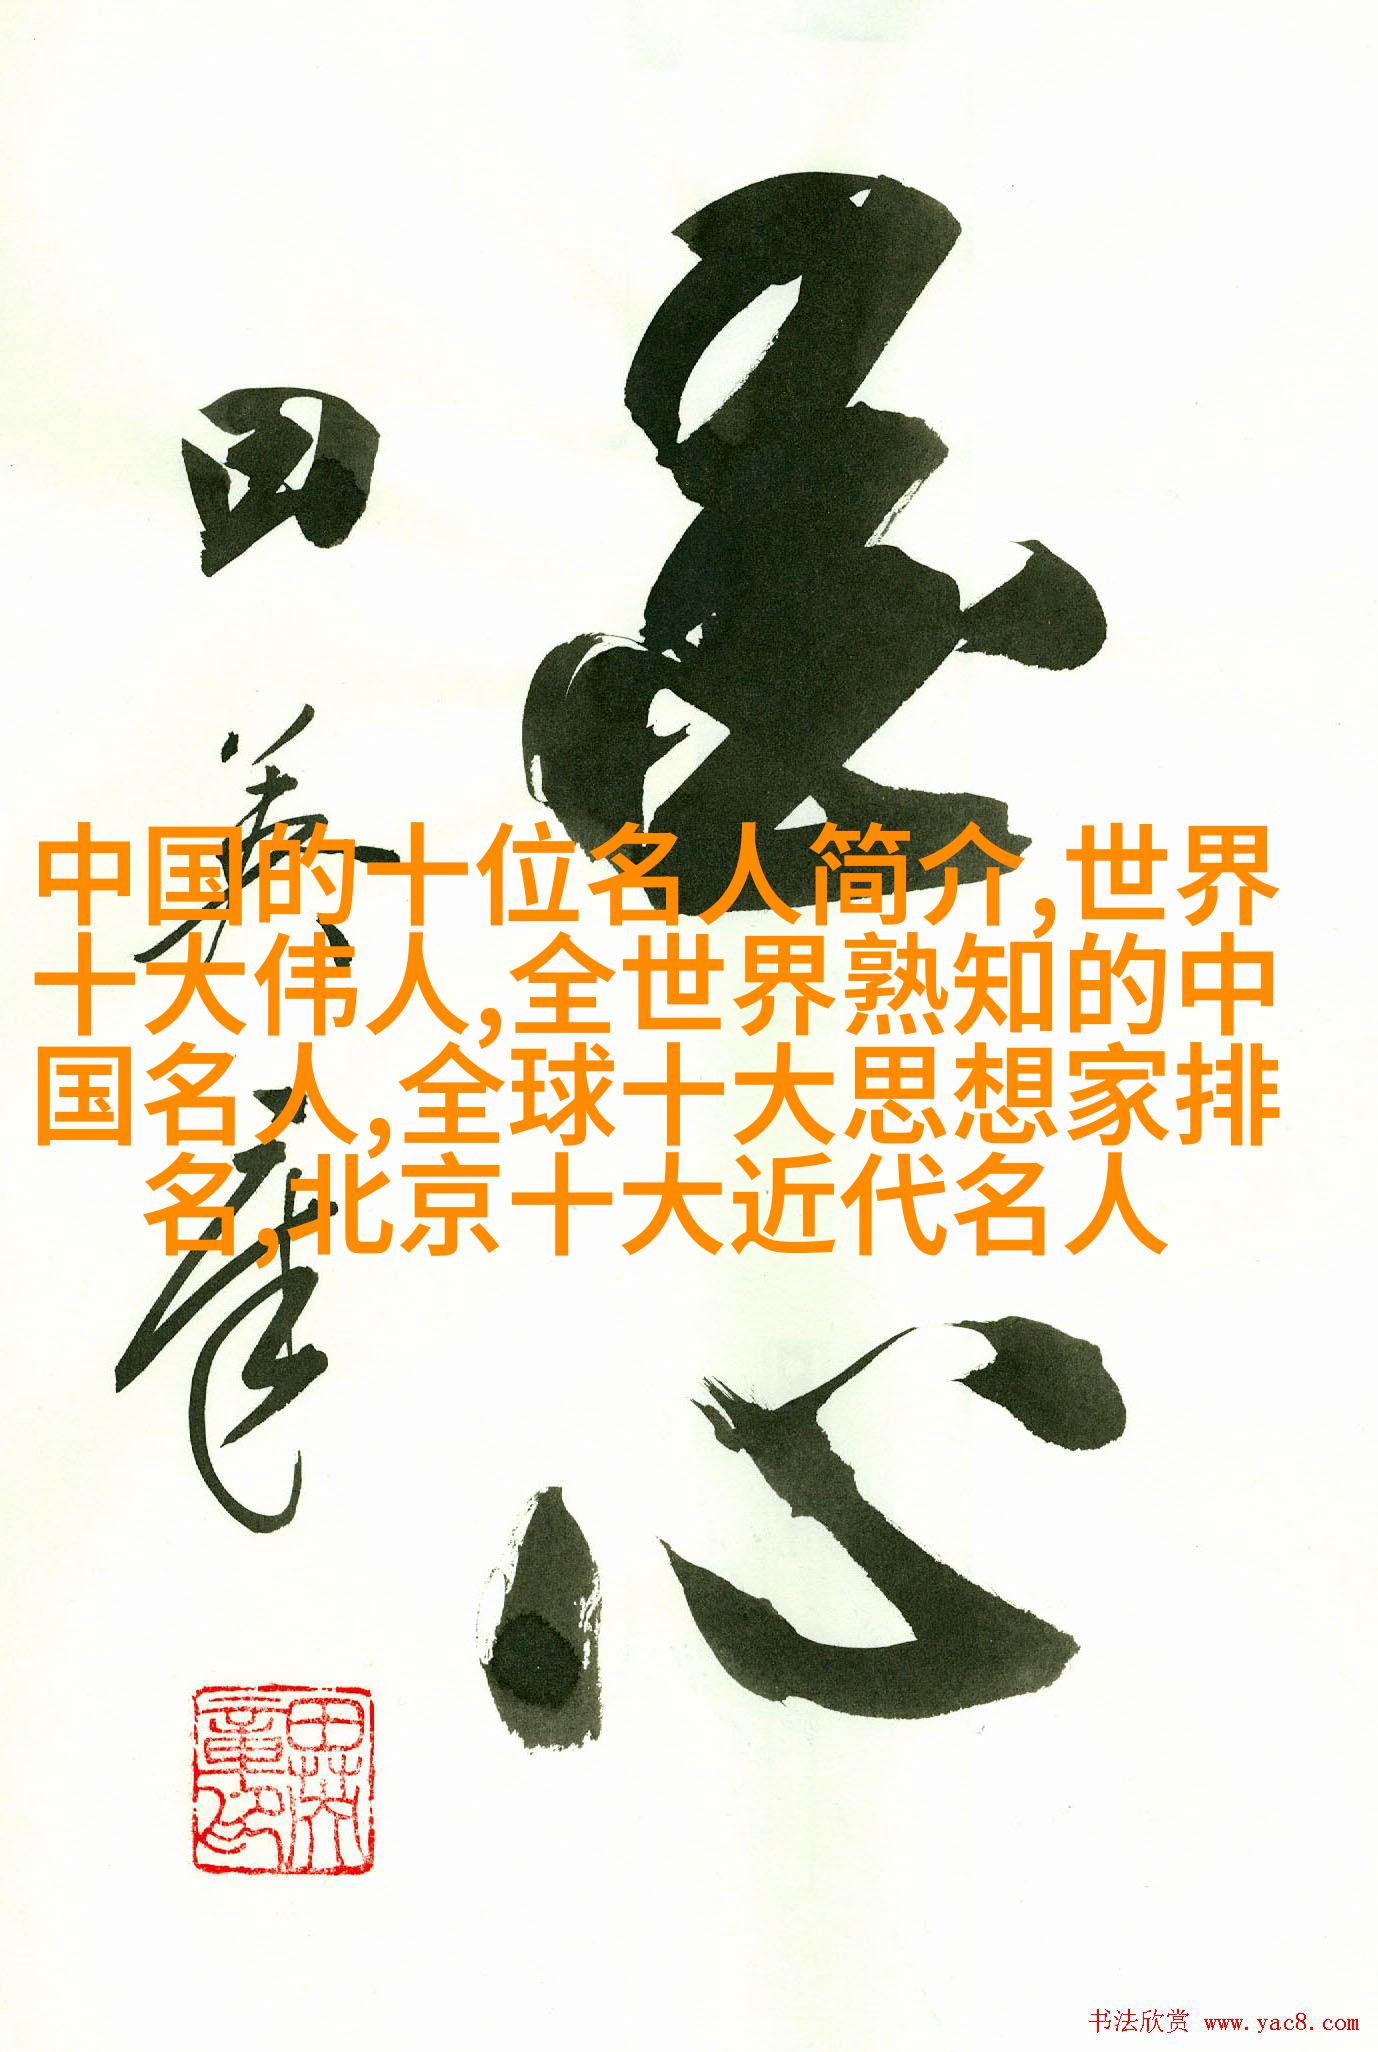 田
英
章
心
中国的十位名人简介,世界
十大伟人,全世界熟知的中
国名人,全球十大思想家排
名,北京十大近代名人
田英章印
书法欣赏 www.yac8.com